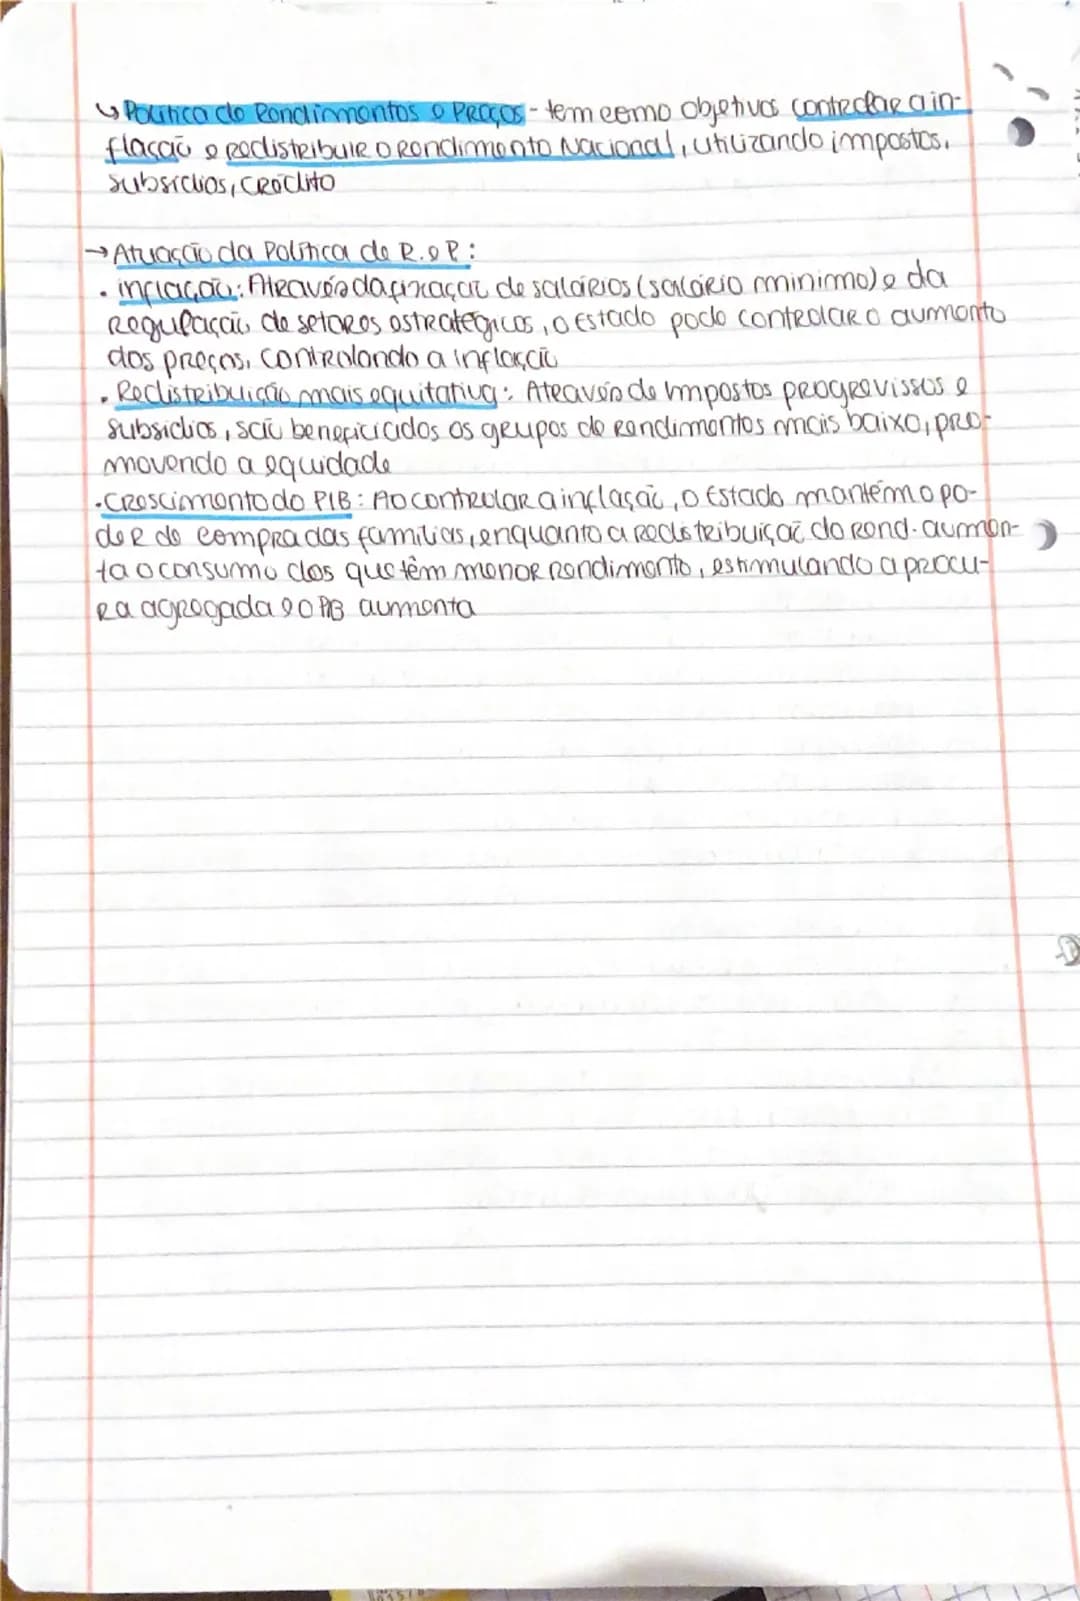 ↳ Política de Rendimentos e Preços - tem como objetivos controlar a in-
flação e redistribuir o rendimento Nacional, utilizando impostos,
subsídios, crédito
→ Atuação da Política de R. e P:
• inflação: Através da fixação de salários (salário minimo) e da
Regulação de setores estratégicos, o Estado pode controlar o aumento
dos preços, controlando a inflação
• Redistribuição mais equitativa: Através de Impostos progrevissos e
subsidios, são beneficiados os grupos de Rendimentos mais baixo, pro-
movendo a equidade
• Crescimento do PIB: Ao controlar a inflação, o Estado mantém o po-
der de compra das famílias, enquanto a redistribuição do rend. aumen-
ta o consumo dos que têm menor rendimento, estimulando a procu-
ra agregada e o PIB aumenta